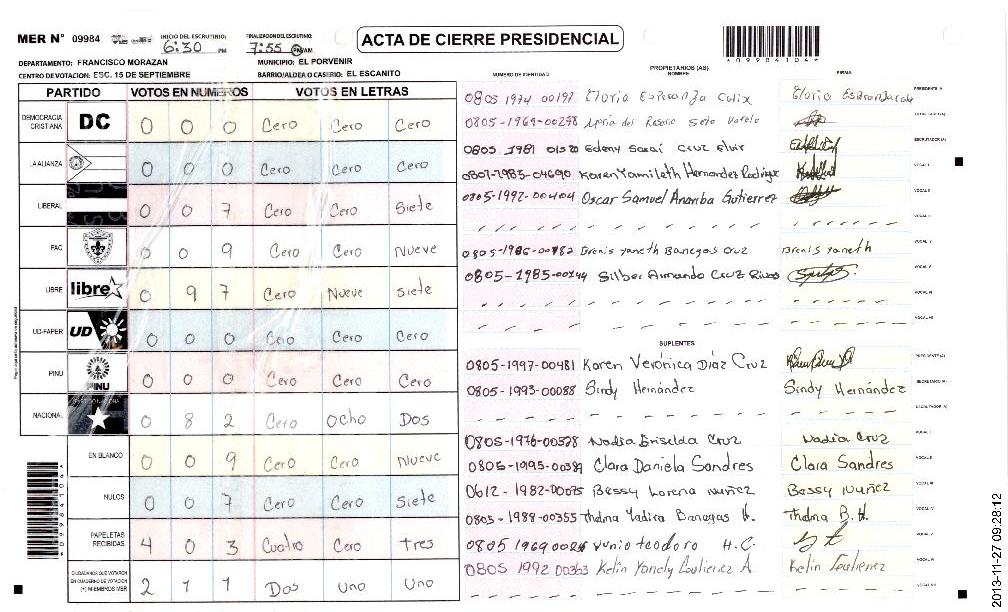 MER N° 09984
INICIO DEL ESCRUTINIO: 6:30 PM
FINALIZACION DEL ESCRUTINIO: 7:55 PM/AM
ACTA DE CIERRE PRESIDENCIAL
*09984104*
DEPARTAMENTO: FRANCISCO MORAZAN
MUNICIPIO: EL PORVENIR
CENTRO DE VOTACION: ESC. 15 DE SEPTIEMBRE
BARRIO/ALDEA O CASERIO: EL ESCANITO
PARTIDO VOTOS EN NUMEROS VOTOS EN LETRAS
DEMOCRACIA CRISTIANA DC 0 0 0 Cero Cero Cero
LA ALIANZA 0 0 0 Cero Cero Cero
LIBERAL 0 0 7 Cero Cero Siete
PAC 0 0 9 Cero Cero Nueve
LIBRE libre 0 9 7 Cero Nueve Siete
UD-FAPER UD 0 0 0 Cero Cero Cero
PINU PINU 0 0 0 Cero Cero Cero
NACIONAL 0 8 2 Cero Ocho Dos
EN BLANCO 0 0 9 Cero Cero Nueve
NULOS 0 0 7 Cero Cero Siete
PAPELETAS RECIBIDAS 4 0 3 Cuatro Cero Tres
CIUDADANOS QUE VOTARON EN CUADERNO DE VOTACION (+) MIEMBROS MER 2 1 1 Dos Uno Uno
*09984104*
NUMERO DE IDENTIDAD PROPIETARIOS (AS) NOMBRE FIRMA
0805 1974 00197 Gloria Esperanza Calix
0805-1969-00278 María del Rosario
0805 1981 01520 Edeny Saraí Cruz Elvir
0807-1985-04690 Karen Yamileth Hernandez Rodriguez
0805-1992-00404 Oscar Samuel Anariba Gutierrez
0805-1986-00782 Brenis Yaneth Banegas Cruz Brenis Yaneth
0805-1985-00144 Silber Armando Cruz Rivas
SUPLENTES
0805-1997-00481 Karen Verónica Díaz Cruz
0805-1993-00088 Sindy Hernández Sindy Hernández
0805-1976-00578 Nadia Griselda Cruz Nadia Cruz
0805-1995-00387 Clara Daniela Sandres Clara Sandres
0612-1982-00075 Bessy Lorena Nuñez Bessy Nuñez
0805-1989-00355 Thelma Yadira Banegas H. Thelma B. H.
0805 1969 Yunio teodoro H.C.
0805 1992 00363 Kelin Yanely Gutierrez A. Kelin Gutierrez
2013-11-27 09:28:12